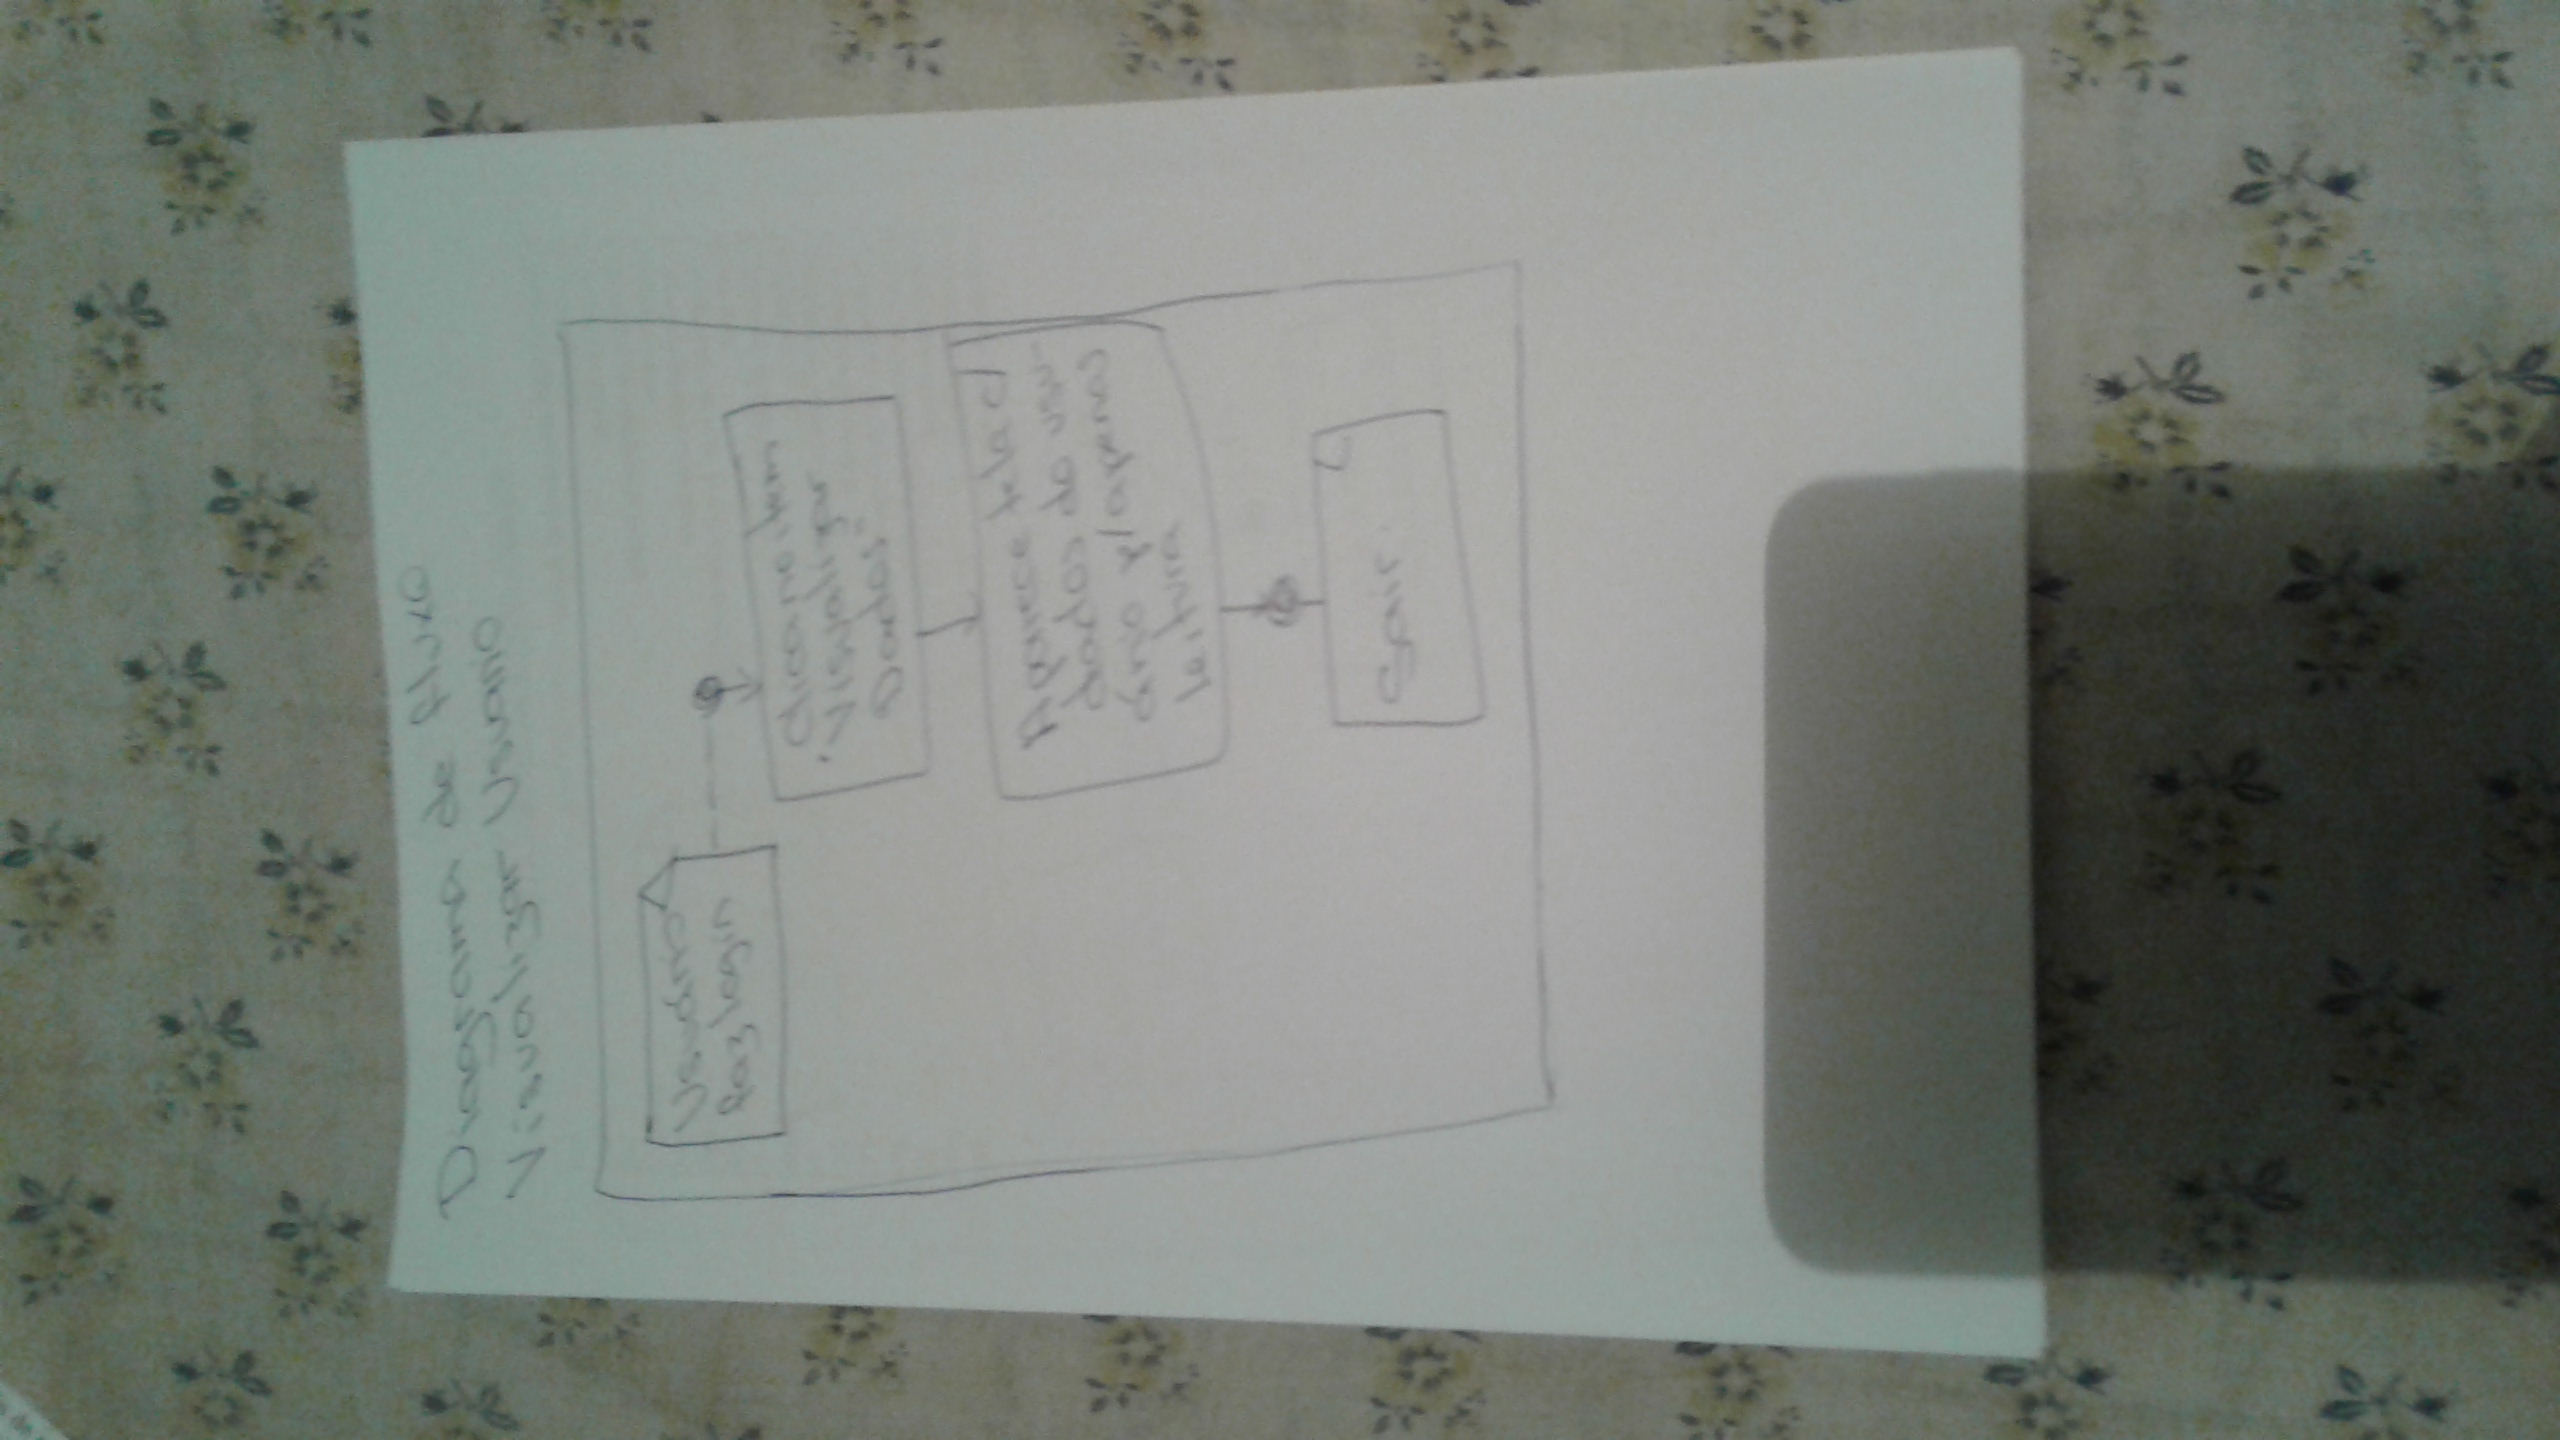 Diagrama de fluxo
Visualizar Usuario
Usuário
faz login
Clica no item
"Visualizar
Dados"
Aparece tela c/
dados do usu-
ário p/ apenas
leitura
Sair